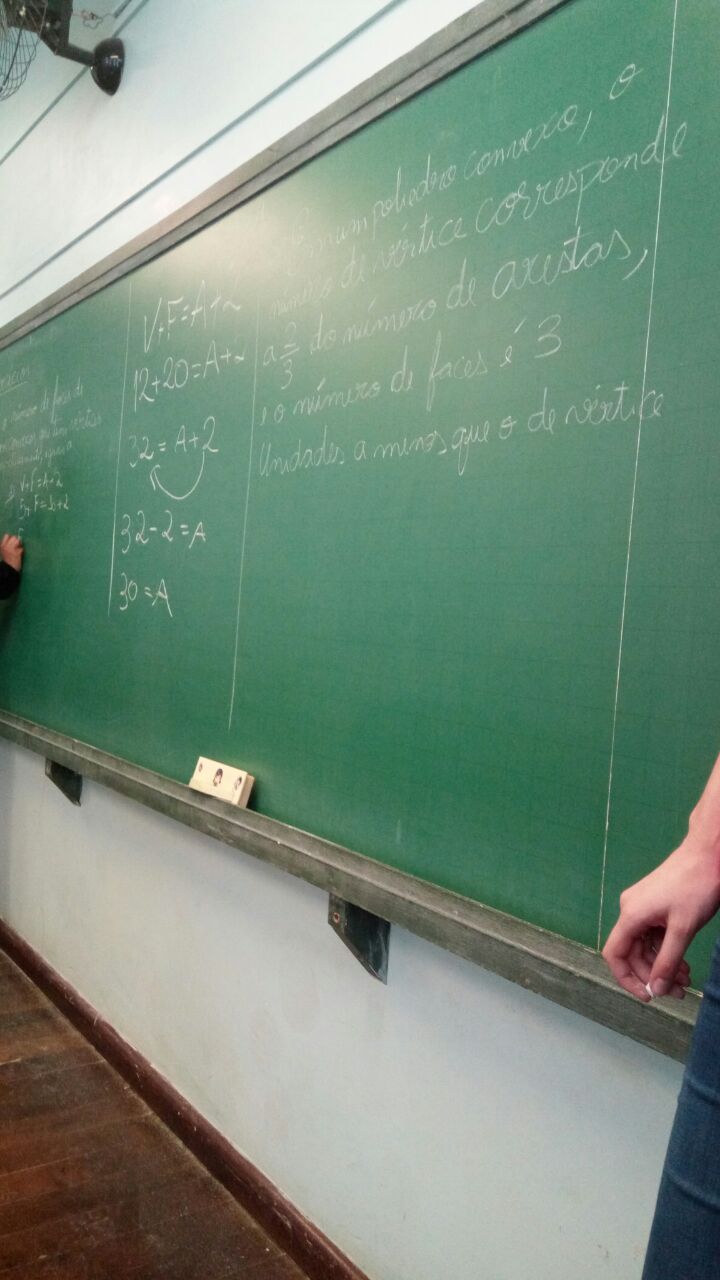 o número de faces de
V+F=A+2
V+F=A+2
12+20=A+2
32=A+2
32-2=A
30=A
num poliedro convexo, o
número de vértice corresponde
a 2/3 do número de arestas,
e o número de faces é 3
Unidades a menos que o de vértice